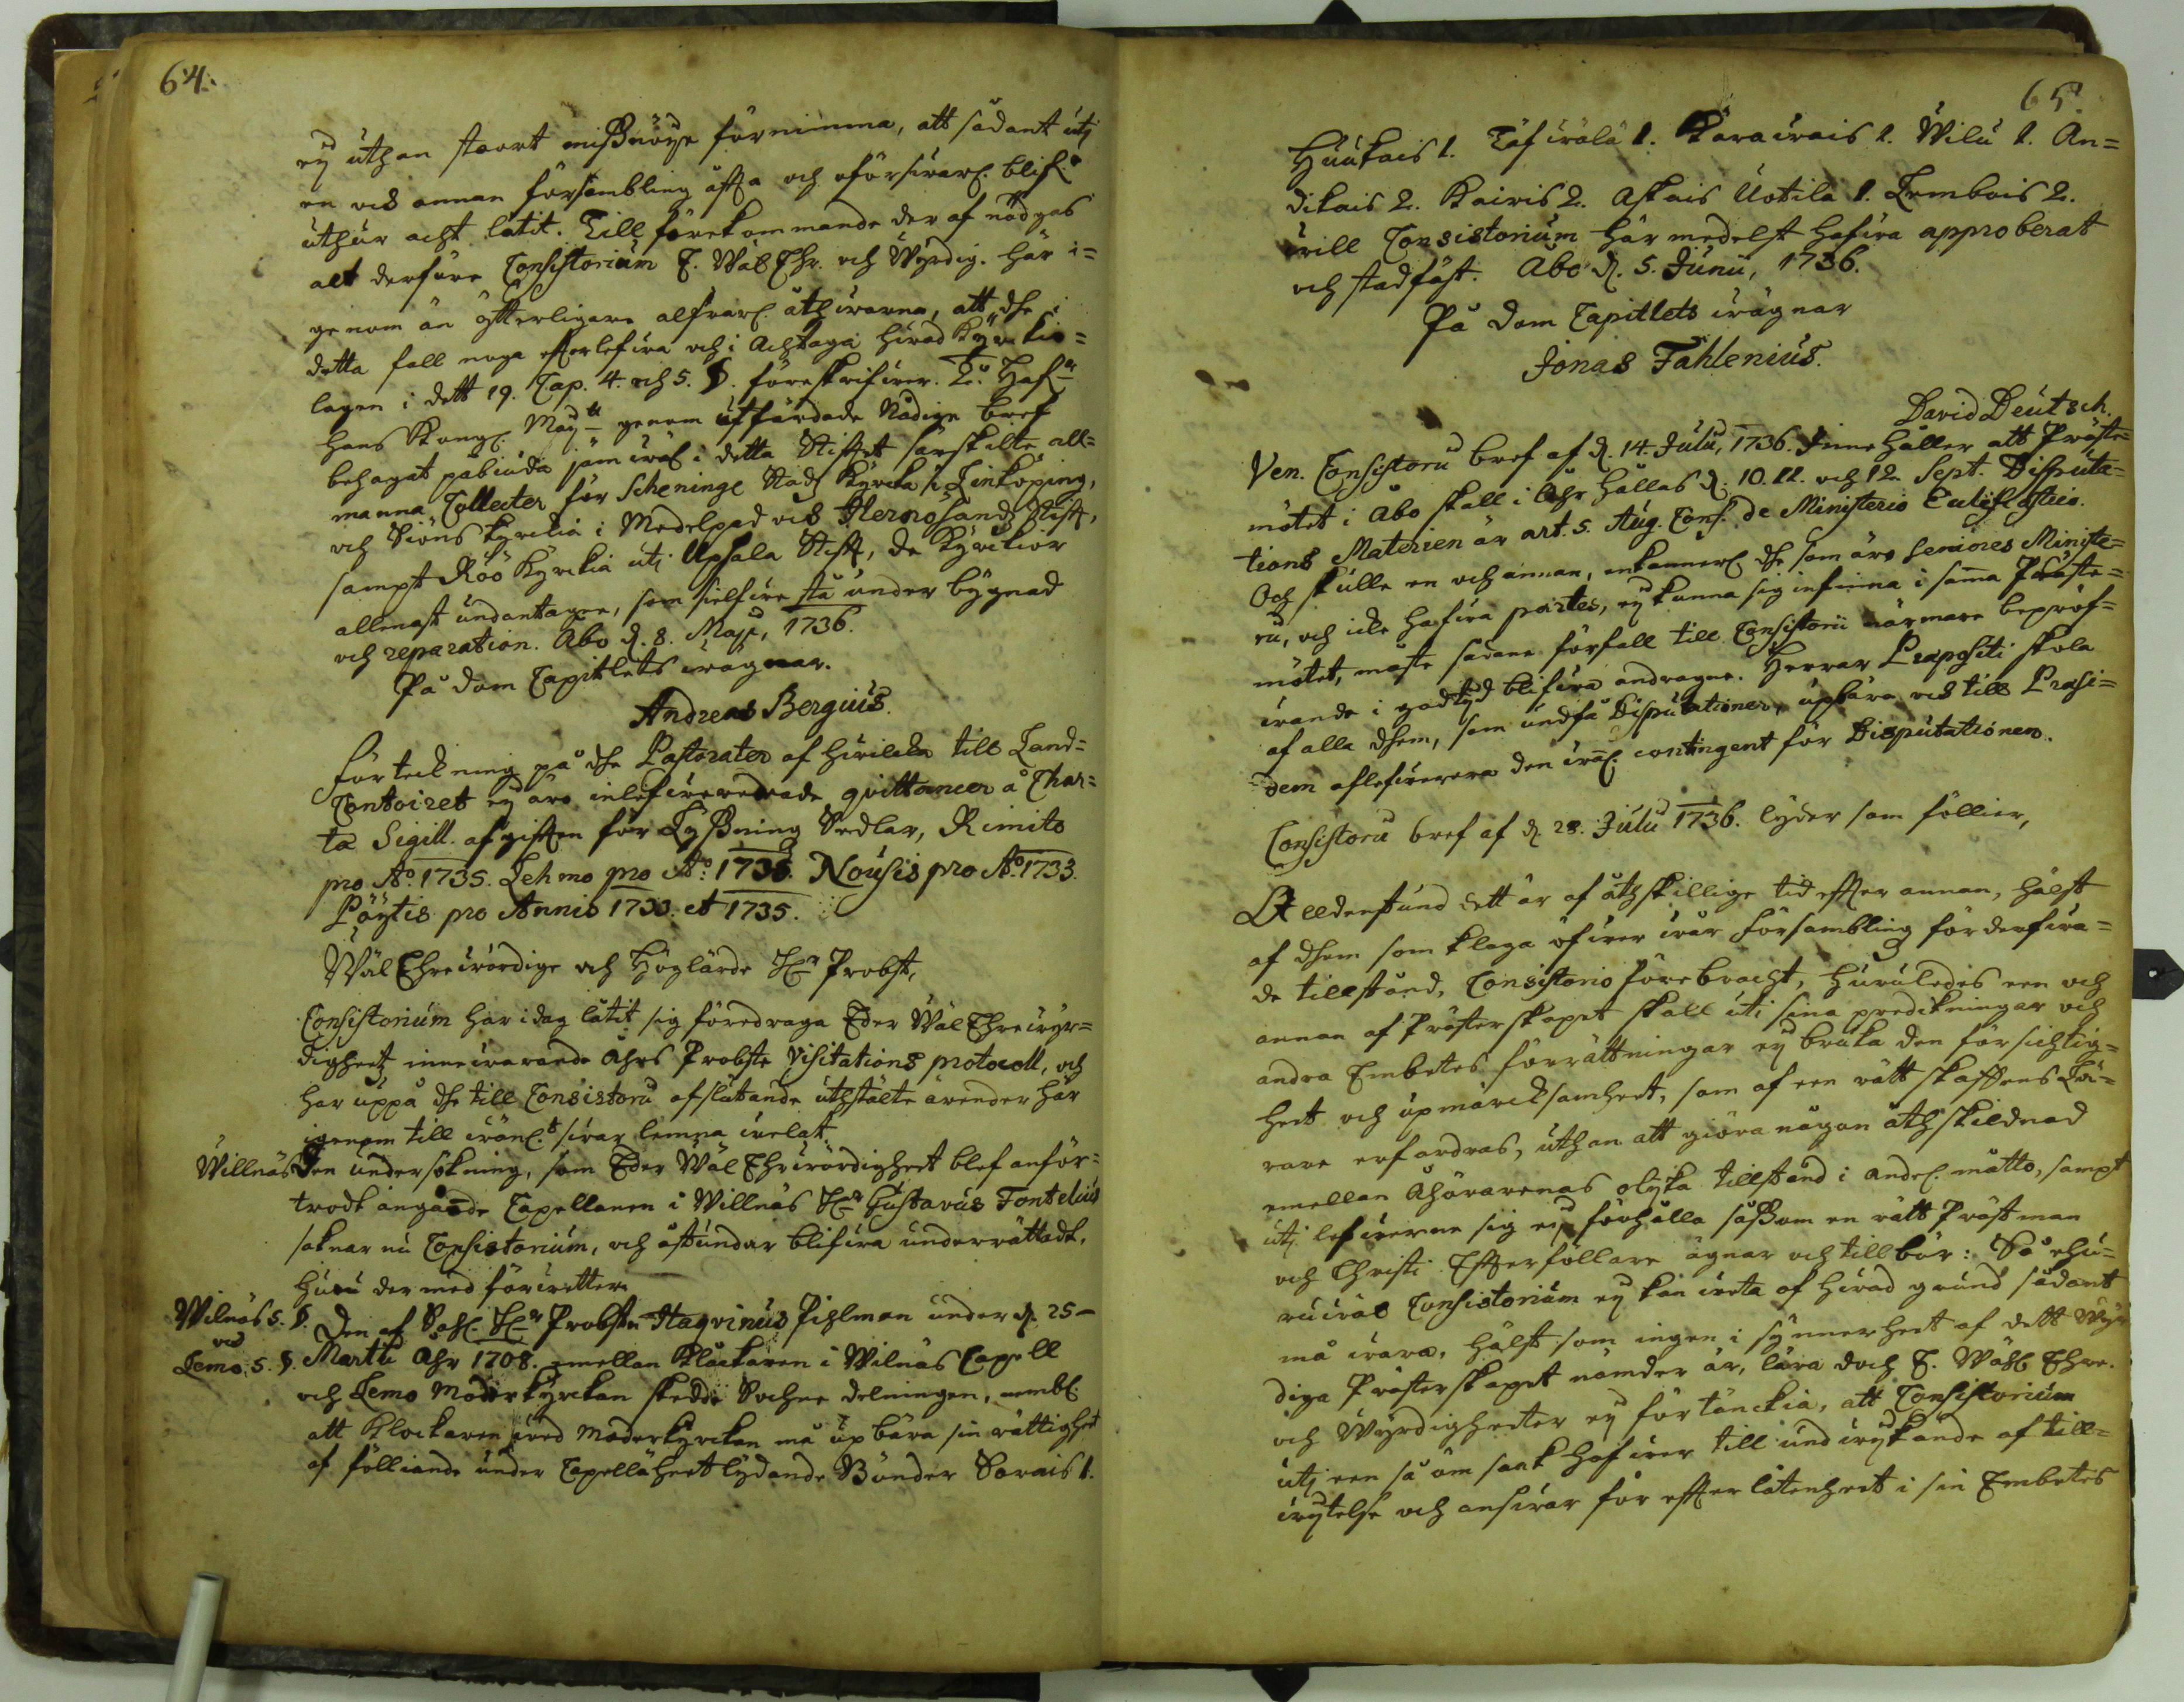 64.
ey uthan stoort missnöye förnimma, att sådant uti
en och annan försambling åsta och oförsvarl. blif:r
uthur acht låtit. Till förekommande der af nödgas
alt derföre Consistorium E. Wäl Ehr. och Wyrdig. här i=
genom än ytterligare alfvarl. åthvarna, att dhe i
detta fall noga efterlefva och i Achttaga hvad Kyrckio=
lagen i dett 19. Cap. 4. och 5. §. föreskrifver.
Hans Kongl. May:tt genom utfärdade Nådige bref
behagat påbiuda jämväl i detta Stiftet särskilte all=
männa Collecter för Scheninge Stads Kyrcka i Linköping,
och Siöns Kyrckia i Medelpad och Hernösands Stift,
sampt Röö Kyrckia uti Upsala Stift, de Kyrckior
allenast undantagne, som sielfve stå under bygnad
och reparation. Åbo d. 8. Maji, 1736.
På Dom Capitlets vägnar.
Andreas Bergius.
Förteckning på dhe Pastorater af hvilcka till Land=
Contoiret ey äro inlefvererade quittancer å Char=
ta Sigill. afgiften för Lyssning Sedlar, Rimito
pro A:o 1735. Lehmo pro A:o 1735. Nousis pro A:o 1733.
Pöytis pro Annis 1733. et 1735.
Wäl Ehrevördige och Höglärde H:r Probst,
Consistorium har i dag låtit sig föredraga Eder Wäl Ehrevyr=
digheetz innevarande Åhrs Probste Visitations protocoll, och
har uppå dhe till Consistorii afslutande uthstälte ärender här
igenom till vänl:t svar lemna velat.
Willnäs Den undersökning, som Eder Wäl Ehrvördigheet blef anför=
trodt angånde Capellanen i Willnäs H:r Gustavus Fontelius
saknar nu Consistorium, och åstundar blifva underrättadt,
huru der med förevetter.
Wilnäs 5. §. Den af Sahl. H:r Probsten Haqvinus Pihlman under d. 25
och
Lemo. 5. §. Martii Åhr 1708. emellan Klåckaren i Wilnäs Capell
och Lemo Moderkyrckan skedde Sochne delningen, nembl.
att Klockaren wed Moderkyrckan må upbära sin rättigheet
af fölliande under Capellaheet lydande Bönder Sorais 1.
65.
Huukais 1. Tafvola 1. Karavais 1. Wilu 1. An=
dikais 2. Kairis 2. Askais Uotila 1. Lembois 2.
vill Consistorium här medelst hafva approberat
och stadfäst. Åbo d. 5. Junii, 1736.
På Dom Capitlets vägnar
Jonas Fahlenius.
David Deutsch.
Ven. Consistorii bref af d. 14. Julii, 1736. Innehåller att Präste=
mötet i Åbo skall i Åhr hållas d. 10. 11. och 12. Sept. Disputa=
tions Materien är art. 5. Aug. Conf. de Ministerio Ecclesiastico.
Och skulle en och annan, enkannerl. dhe som äro Seniores Ministe=
rii, och icke hafva partes, ey kunna sig infinna i samma Präste=
mötet, måste sådane förfall till Consistorii närmare bepröf=
vande i god tyd blifva andragne. Herrar Præpositi skola
af alla dhem, som undfå Disputationer, upbära och till Præsi=
dem aflefverera den van:l. contingent för Disputationen.
Consistorii bref af d. 28. Julii 1736. lyder som föllier,
Alldenstund dett är af åthskillige tid efter annan, hälst
af dhem som klaga öfver vår Församblings förderfva=
de tillstånd, Consistorio förebracht, huruledes een och
annan af Prästerskapet skall uti sina predikningar och
andra Embetes förrättningar ey bruka den försichtig=
heet och upmärcksamheet, som af een rätt skaffens Lä=
rare erfordras, uthan att giöra någon åthskildnad
emellan Åhörarenas olijka tillstånd i andel. måtto, sampt
uti lefverne sig ey förhålla såssom en rätt Prästman
och Christi Efterföllare ägnar och tillbör: Så ehu=
ruväl Consistorium ey kan veta af hvad grund sådant
må vara, hälst som ingen i synnerheet af dett Wyr
diga Prästerskapet nämder är, lära doch E. Wähl Ehre.
och Wyrdigheeter ey förtänckia, att Consistorium
uti een så öm saak hafver till undvykande af till=
vytelse och ansvar för efterlåtenheet i sin Embetes